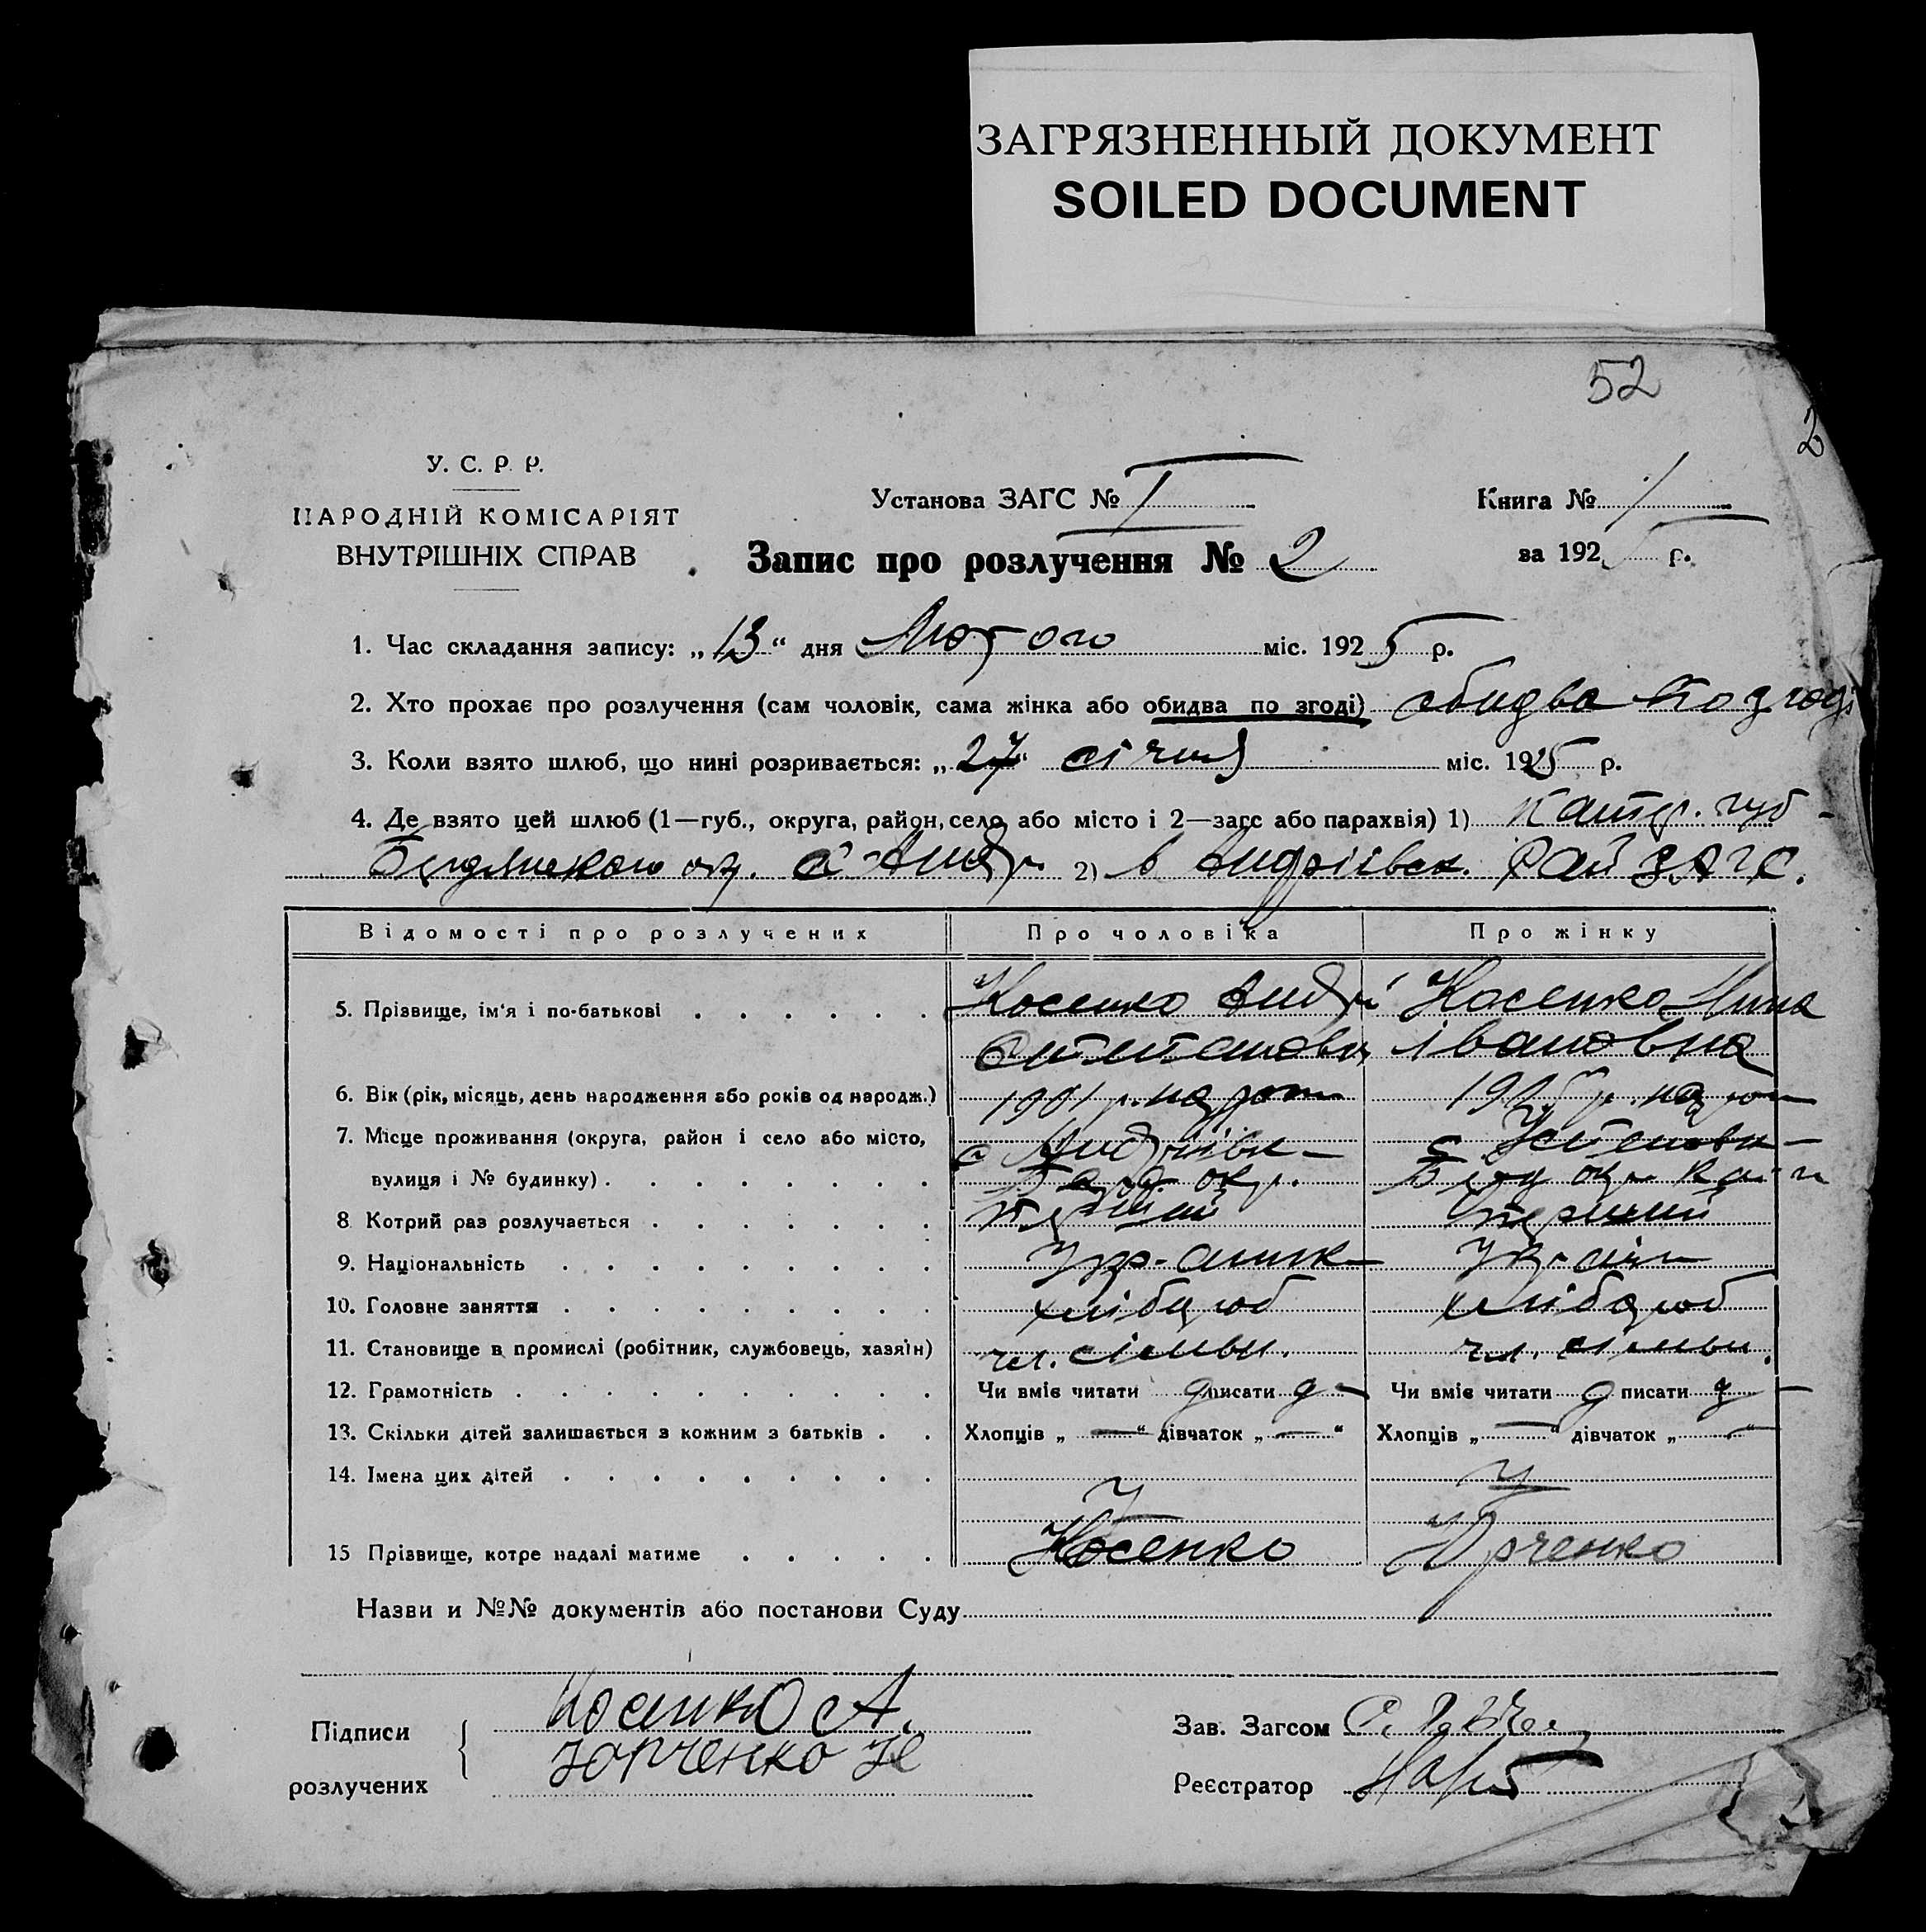 ЗАГРЯЗНЕННЫЙ ДОКУМЕНТ
SOILED DOCUMENT
52
2
У. С. Р. Р.
НАРОДНІЙ КОМІСАРІЯТ
ВНУТРІШНІХ СПРАВ
Установа ЗАГС № I
Книга № 1
Запис про розлучення № 2
за 1925 р.
1. Час складання запису: „13“ дня Лютого міс. 1925 р.
2. Хто прохає про розлучення (сам чоловік, сама жінка або обидва по згоді) обидва по згоді
3. Коли взято шлюб, що нині розривається: „27“ січня міс. 1925 р.
4. Де взято цей шлюб (1—губ., округа, район, село або місто і 2—загс або парахвія) 1) Катер. губ
окр. с Андр 2) в Андріївск. Рай ЗАГС.
Відомості про розлучених Про чоловіка Про жінку
5. Прізвище, ім'я і по-батькові Носенко Андрій Носенко Нина
Івановна
6. Вік (рік, місяць, день народження або років од народж.) 1901 р. народж
7. Місце проживання (округа, район і село або місто, с Андріївк
вулиця і № будинку) Берд. окр. Берд окр
8 Котрий раз розлучається перший перший
9. Національність
10. Головне заняття хлібороб хлібороб
11. Становище в промислі (робітник, службовець, хазяїн) чл. сімьи. чл. сімьи.
12. Грамотність Чи вміє читати писати Чи вміє читати писати
13. Скільки дітей залишається з кожним з батьків Хлопців „ — “ дівчаток „ — “ Хлопців „ — “ дівчаток „ — “
14. Імена цих дітей
15 Прізвище, котре надалі матиме Носенко Юрченко
Назви и №№ документів або постанови Суду
Підписи
розлучених
Носенко А.
Юрченко Н
Зав. Загсом
Реєстратор